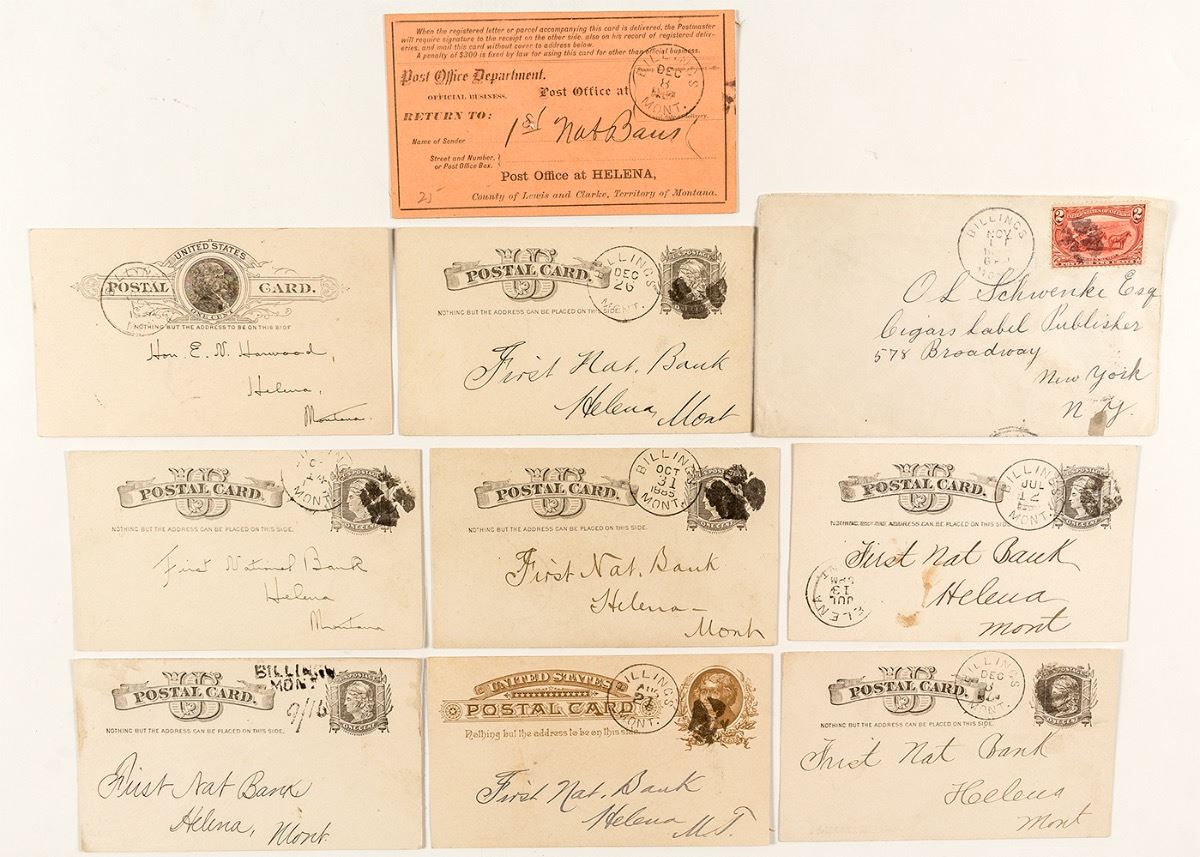 When the registered letter or parcel accompanying this card is delivered, the Postmaster
will require signature to the receipt on the other side, also on his record of registered deliv-
eries, and mail this card without cover to address below.
A penalty of $300 is fixed by law for using this card for other than official business.
Post Office Department.
OFFICIAL BUSINESS.
Post Office at
BILLINGS
DEC
8
MONT.
RETURN TO:
Name of Sender
1st Nat Bank
Street and Number,
or Post Office Box.
Post Office at HELENA,
County of Lewis and Clarke, Territory of Montana.
25
UNITED STATES
POSTAL CARD.
ONE CENT
NOTHING BUT THE ADDRESS TO BE ON THIS SIDE
Hon. E. N. Harwood,
Helena,
Montana.
US
POSTAL CARD.
NOTHING BUT THE ADDRESS CAN BE PLACED ON THIS SIDE.
BILLINGS
DEC
26
MONT.
First Nat. Bank
Helena, Mont
BILLINGS
NOV
1
2 2
O L Schwenke Esq
Cigars Label Publisher
578 Broadway
New York
N Y.
US
POSTAL CARD.
NOTHING BUT THE ADDRESS CAN BE PLACED ON THIS SIDE.
MONT.
ONE CENT
First National Bank
Helena
Montana
US
POSTAL CARD.
NOTHING BUT THE ADDRESS CAN BE PLACED ON THIS SIDE.
BILLINGS
OCT
31
1885
MONT.
ONE CENT
First Nat. Bank
Helena
Mont
US
POSTAL CARD.
NOTHING BUT THE ADDRESS CAN BE PLACED ON THIS SIDE.
BILLINGS
JUL
12
MONT.
ONE CENT
First Nat Bank
Helena
Mont
HELENA
JUL
13
PM
US
POSTAL CARD.
NOTHING BUT THE ADDRESS CAN BE PLACED ON THIS SIDE.
BILLINGS
MONT
9/16
POSTAGE
ONE CENT
First Nat Bank
Helena, Mont.
UNITED STATES
POSTAL CARD
Nothing but the address to be on this side.
BILLINGS
AUG
MONT.
First Nat. Bank
Helena
M.T.
US
POSTAL CARD.
NOTHING BUT THE ADDRESS CAN BE PLACED ON THIS SIDE.
BILLINGS
DEC
8
MONT.
ONE CENT
First Nat Bank
Helena
Mont